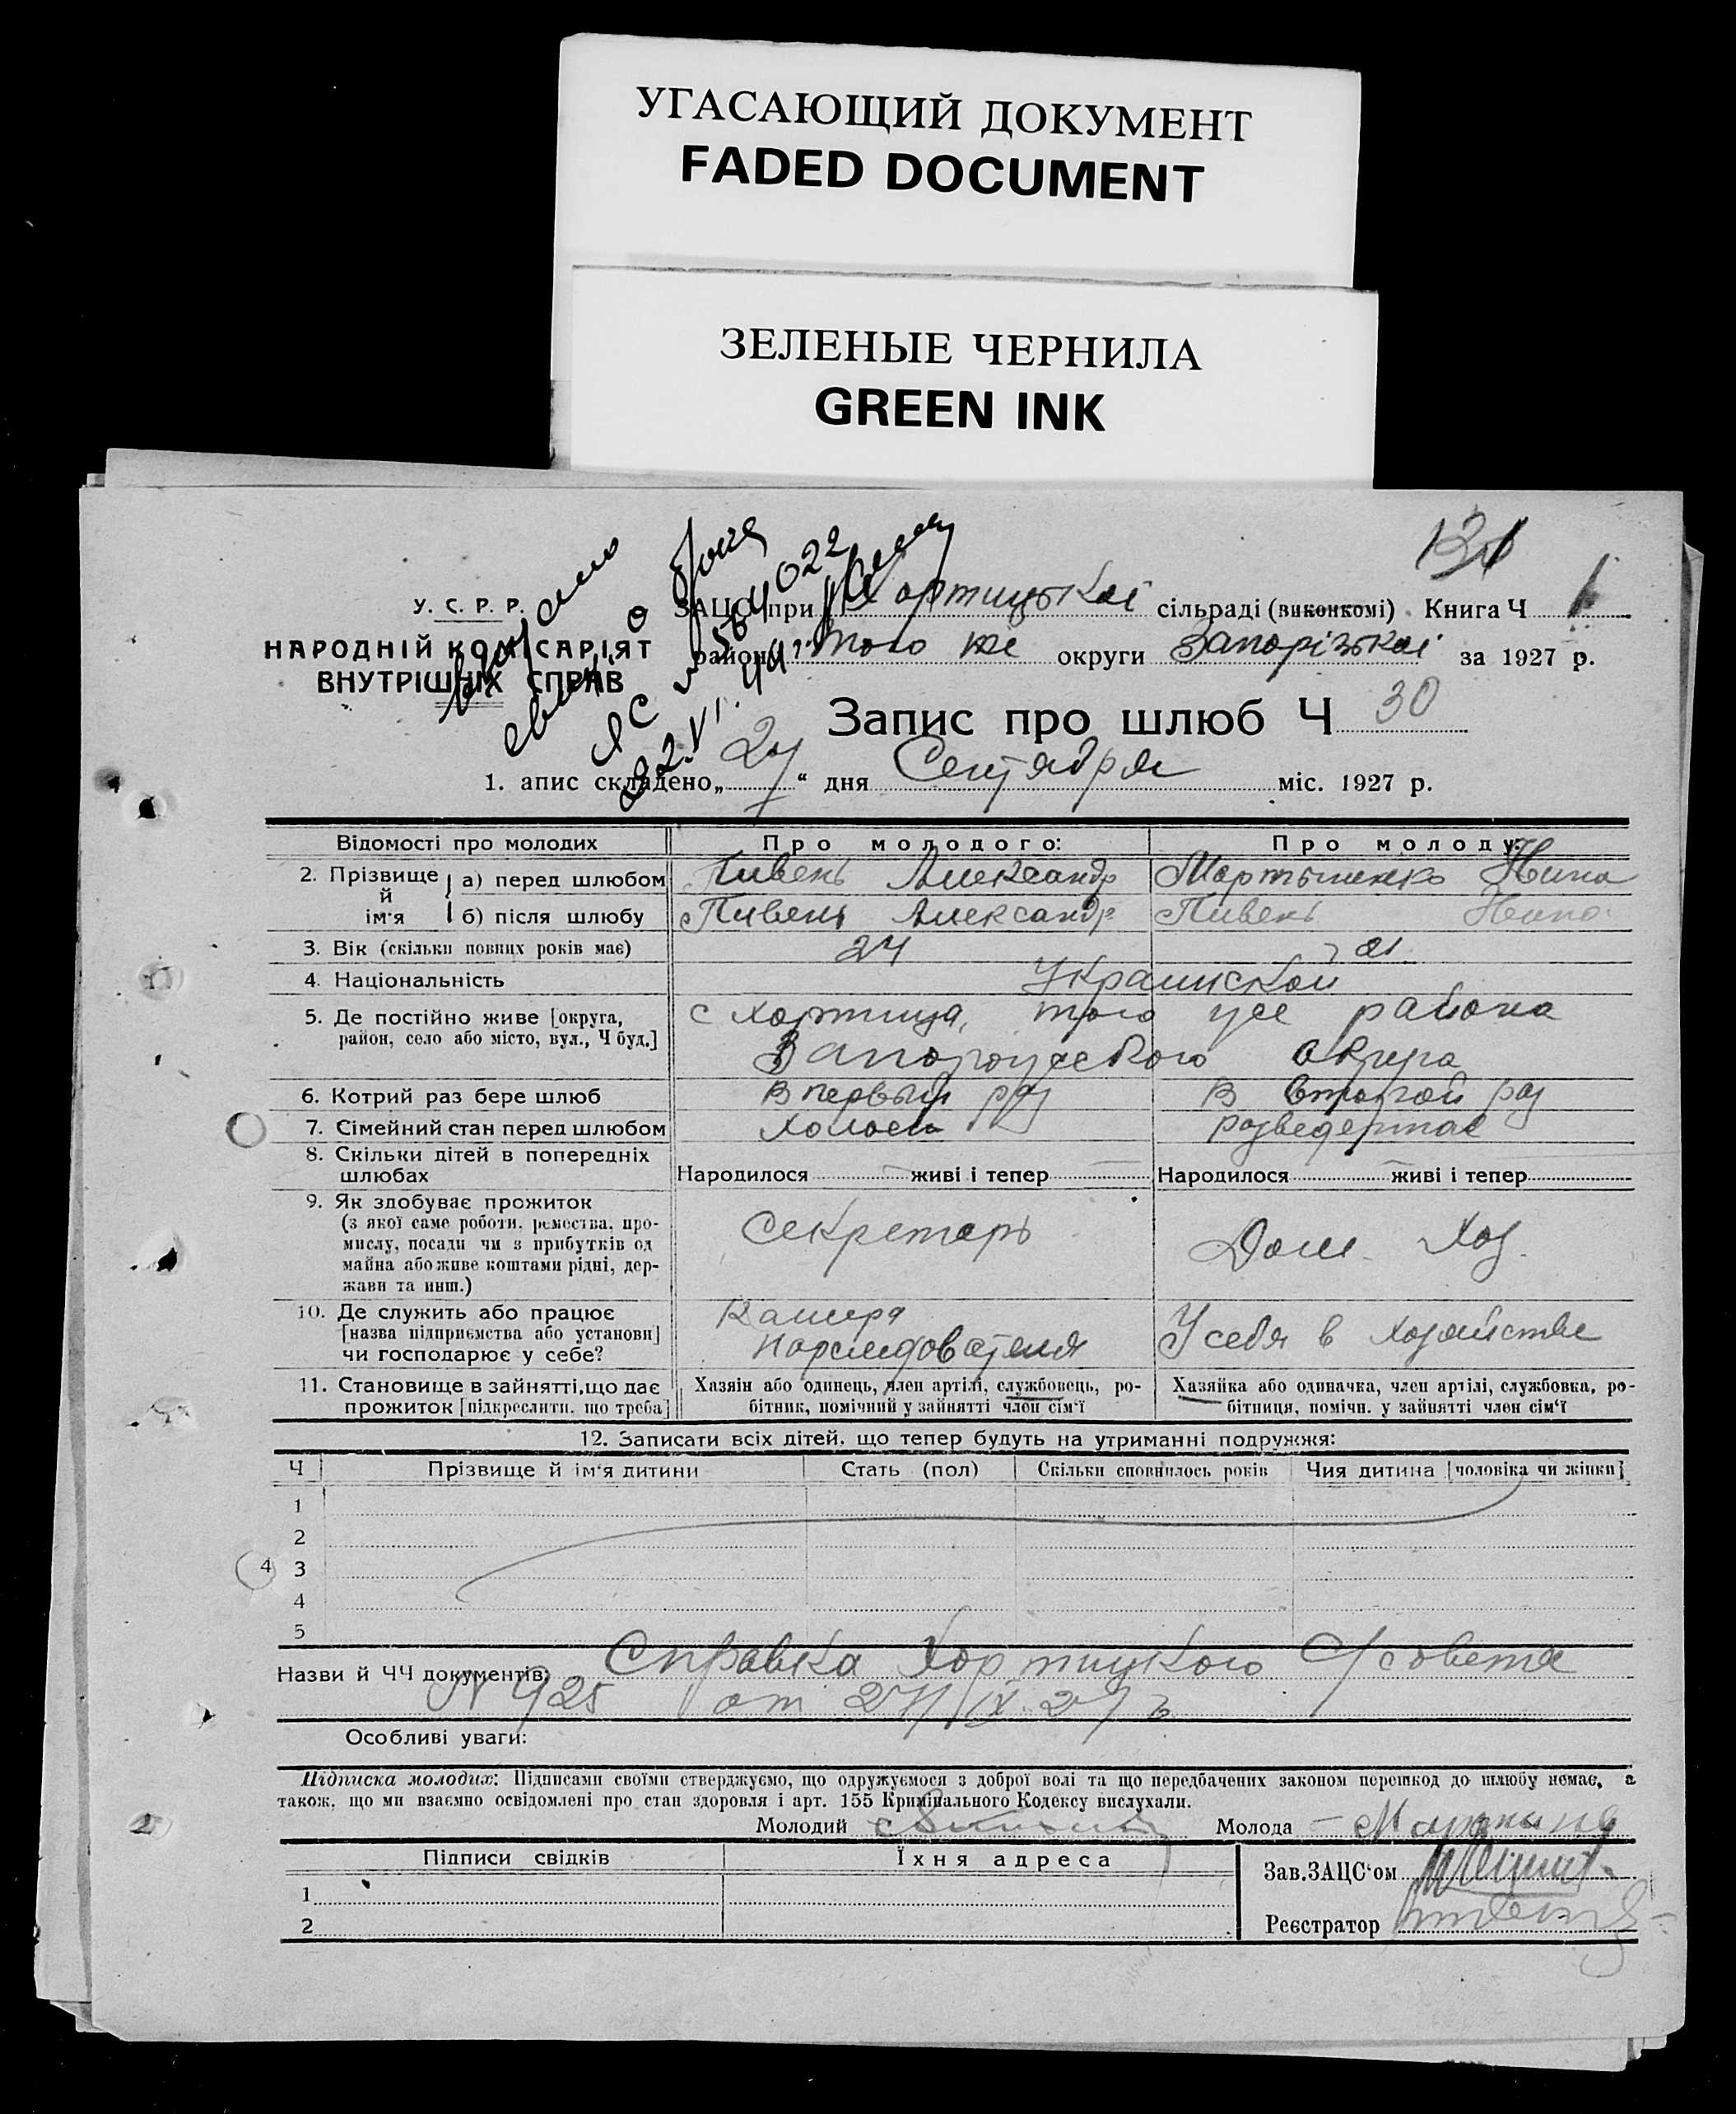 УГАСАЮЩИЙ ДОКУМЕНТ
FADED DOCUMENT
ЗЕЛЕНЫЕ ЧЕРНИЛА
GREEN INK
У. С. Р. Р.
НАРОДНІЙ КОМІСАРІЯТ
ВНУТРІШНІХ СПРАВ
выдано
о браке
ЯС
22.VI.44 г.
131
ЗАЦС при Хортицької сільраді (виконкомі) Книга Ч 1
район того же округи Запорізької за 1927 р.
Запис про шлюб Ч 30
1. апис складено „27“ дня Сентября міс. 1927 р.
Відомості про молодих Про молодого: Про молоду:
2. Прізвище й ім'я а) перед шлюбом Пивень Александр Мартыненко Нина
б) після шлюбу Пивень Александр Пивень Нина
3. Вік (скільки повних років має) 24 21
4. Національність Украинской
5. Де постійно живе [округа, район, село або місто, вул., Ч буд.] с Хортица, того же района
Запорожского округа
6. Котрий раз бере шлюб В первый раз В второй раз
7. Сімейний стан перед шлюбом Холост разведенная
8. Скільки дітей в попередніх шлюбах Народилося — живі і тепер — Народилося — живі і тепер
9. Як здобуває прожиток
(з якої саме роботи, ремества, про-
мислу, посади чи з прибутків од
майна або живе коштами рідні, дер-
жави та инш.)
Секретарь Дом. Хоз.
10. Де служить або працює
[назва підприємства або установи]
чи господарює у себе?
Камера
Нарследователя У себя в хозяйстве
11. Становище в зайнятті, що дає
прожиток [підкреслити, що треба]
Хазяін або одинець, член артілі, службовець, ро-
бітник, помічний у зайнятті член сім'ї
Хазяйка або одиначка, член артілі, службовка, ро-
бітниця, помічн. у зайнятті член сім'ї
12. Записати всіх дітей, що тепер будуть на утриманні подружжя:
Ч Прізвище й ім'я дитини Стать (пол) Скільки сповнилось років Чия дитина [чоловіка чи жінки]
1
2
4 3
4
5
Назви й ЧЧ документів Справка Хортицкого С/совета
N 925 от 27/IX 27 г
Особливі уваги:
Підписка молодих: Підписами своїми стверджуємо, що одружуємося з доброї волі та що передбачених законом перешкод до шлюбу немає, а
також, що ми взаємно освідомлені про стан здоровля і арт. 155 Кримінального Кодексу вислухали.
Молодий Молода
Підписи свідків Їхня адреса
Зав.ЗАЦС'ом
1
Реєстратор
2